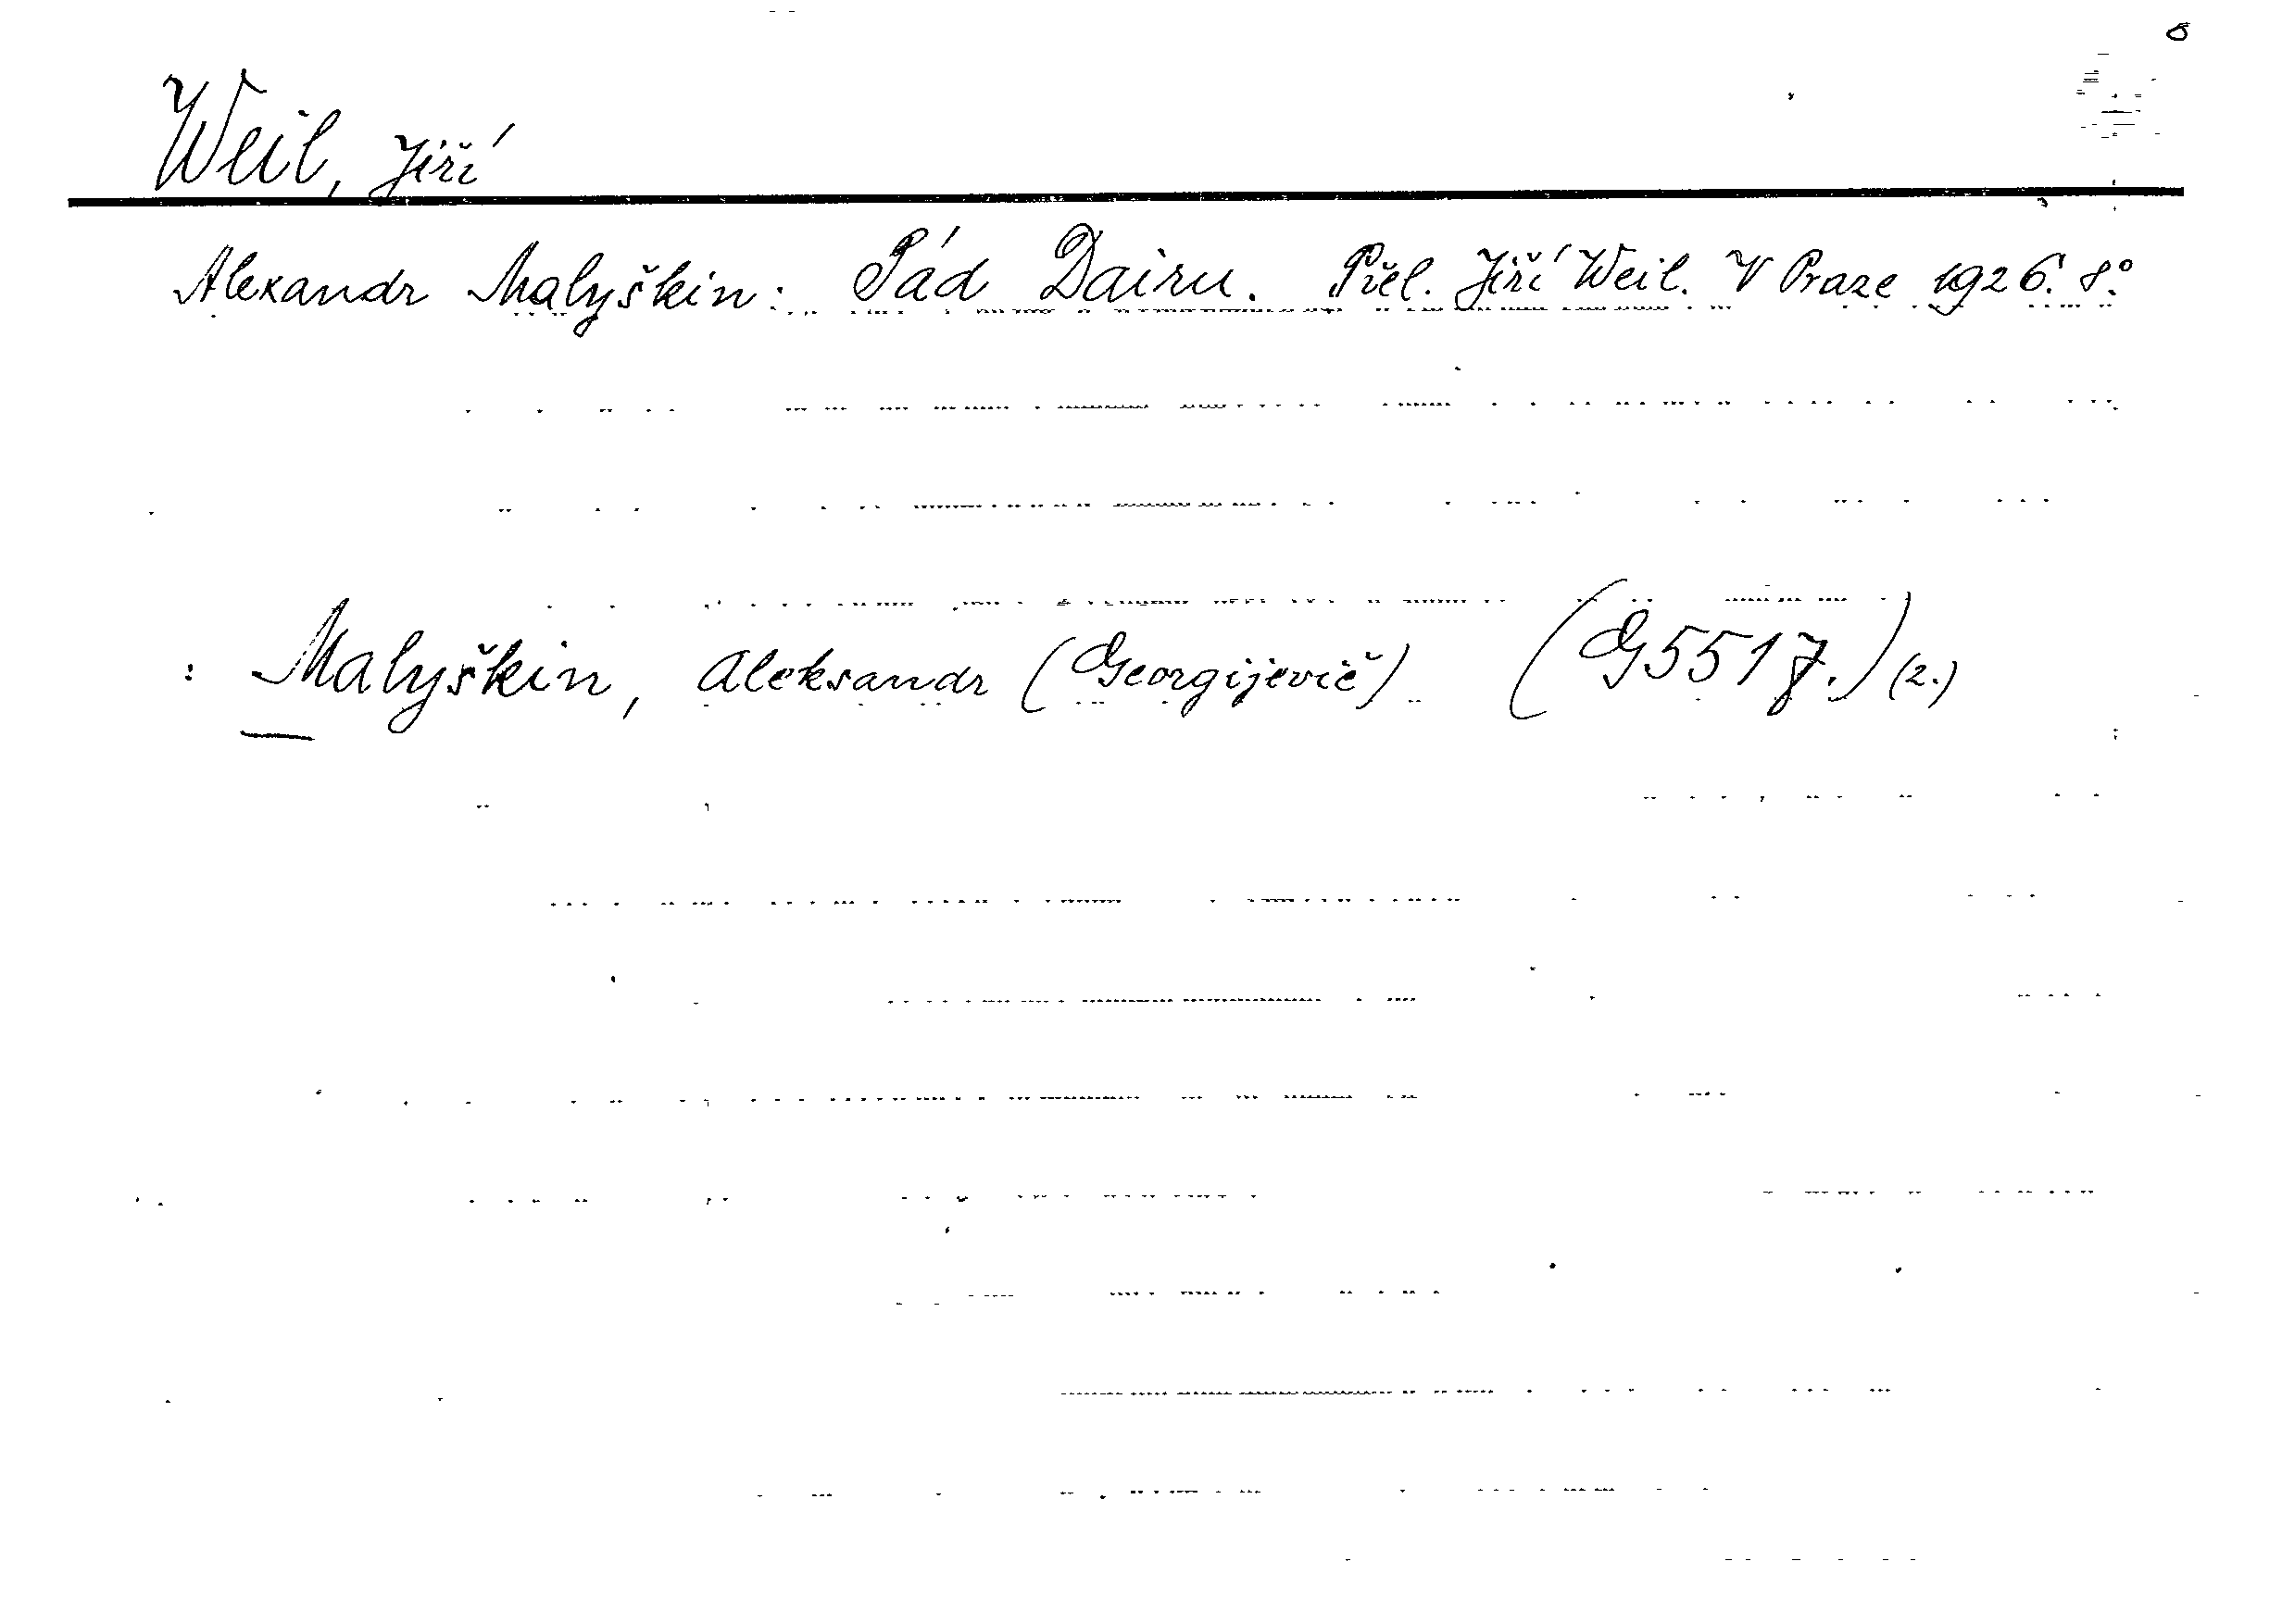 8
Weil, Jiří
Alexandr Malyškin: Pád Dairu. Přel. Jiří Weil. V Praze 1926. 8°.
: Malyškin, Aleksandr (Georgijevič) (G 5517.) (2.)